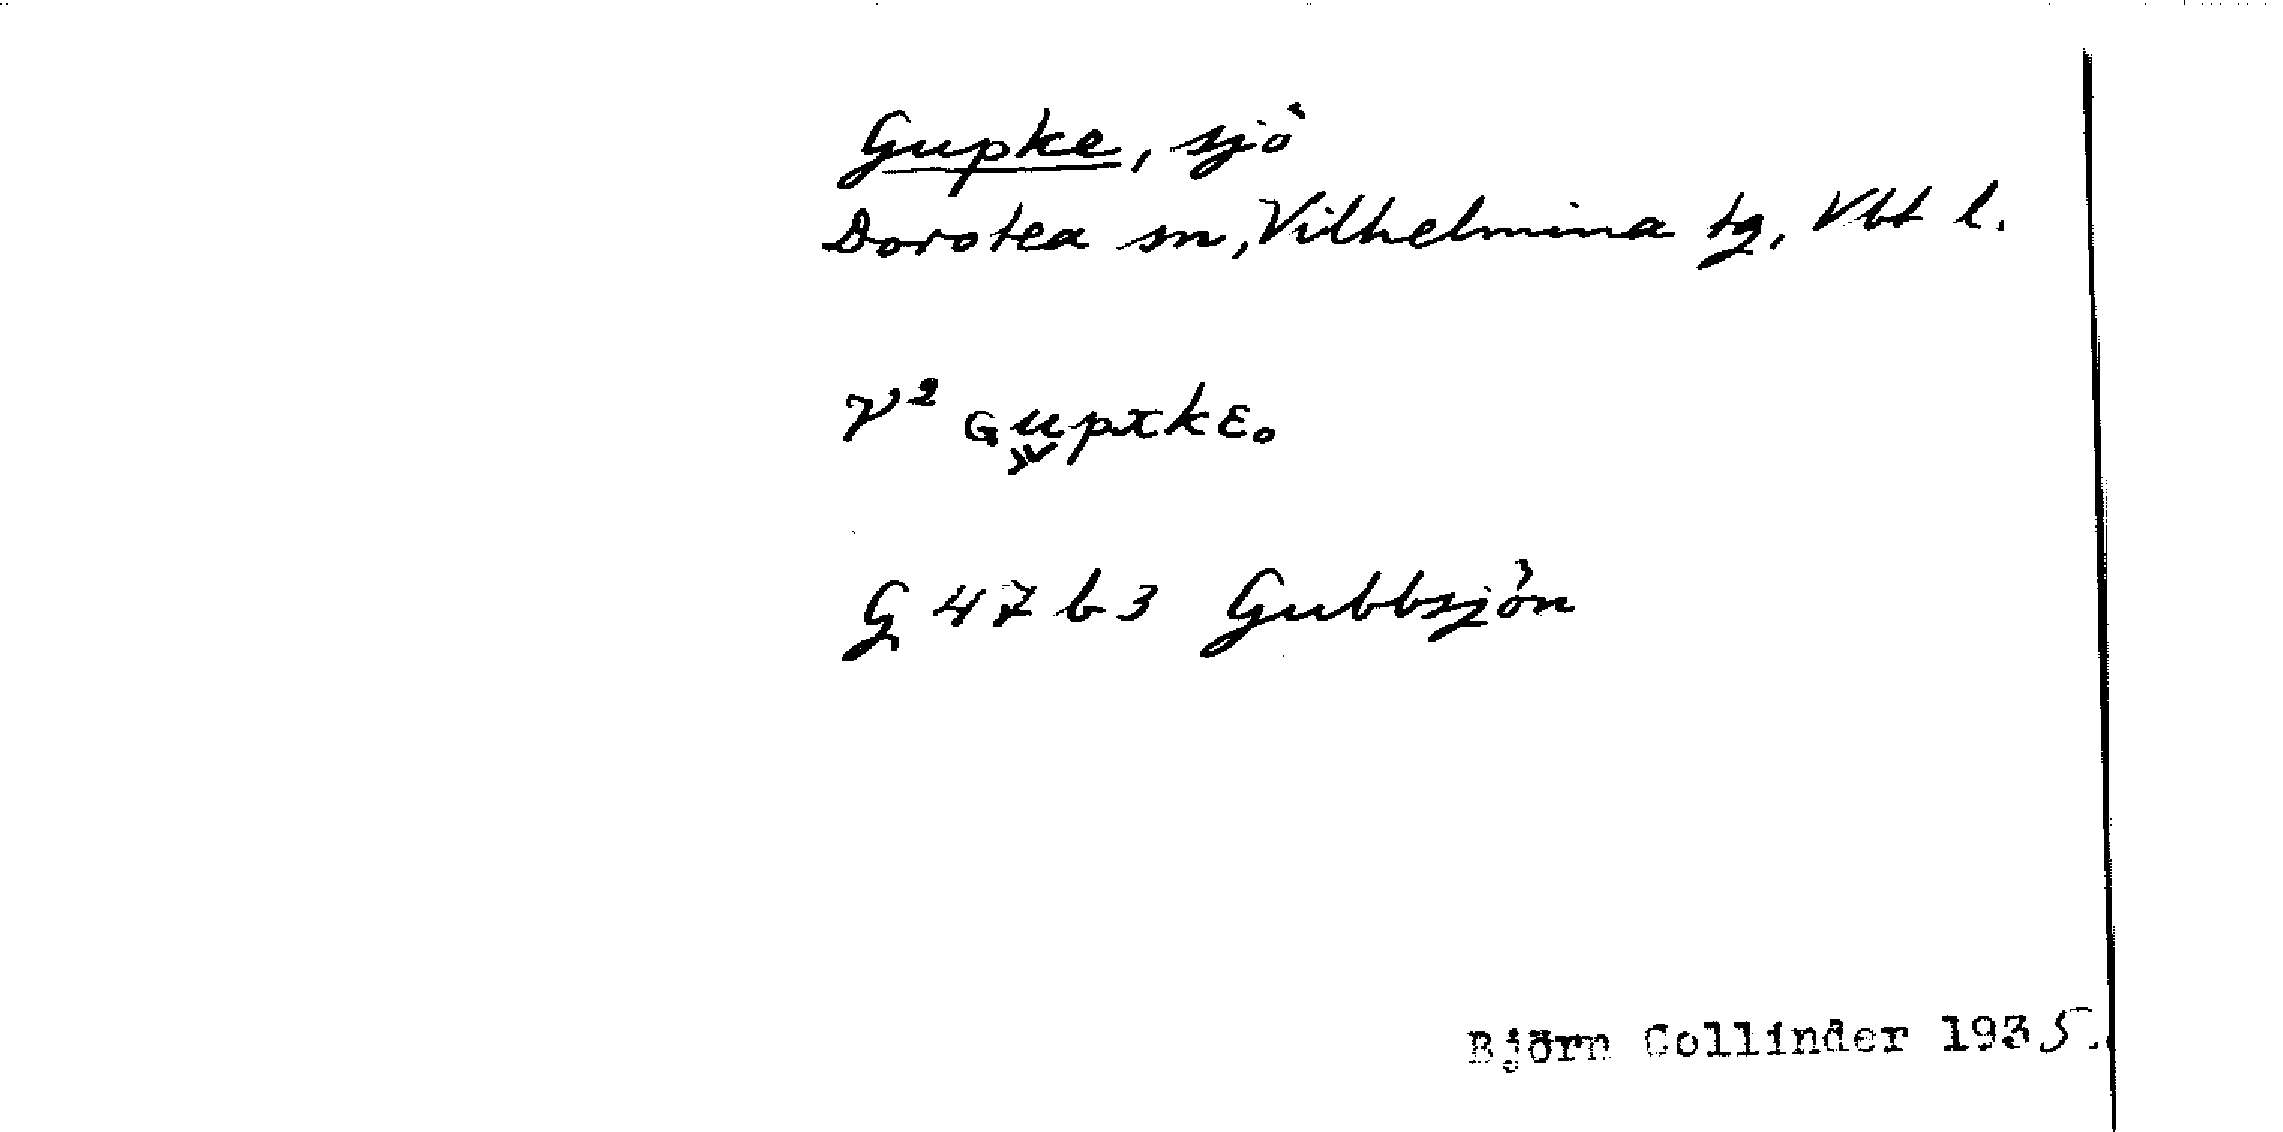 Gupke, sjö
Dorotea sn, Vilhelmina tg, Vbt l.
V² ɢu̬pxkɛ.
G 47 b 3 Gubbsjön
Björn Collinder 1935.